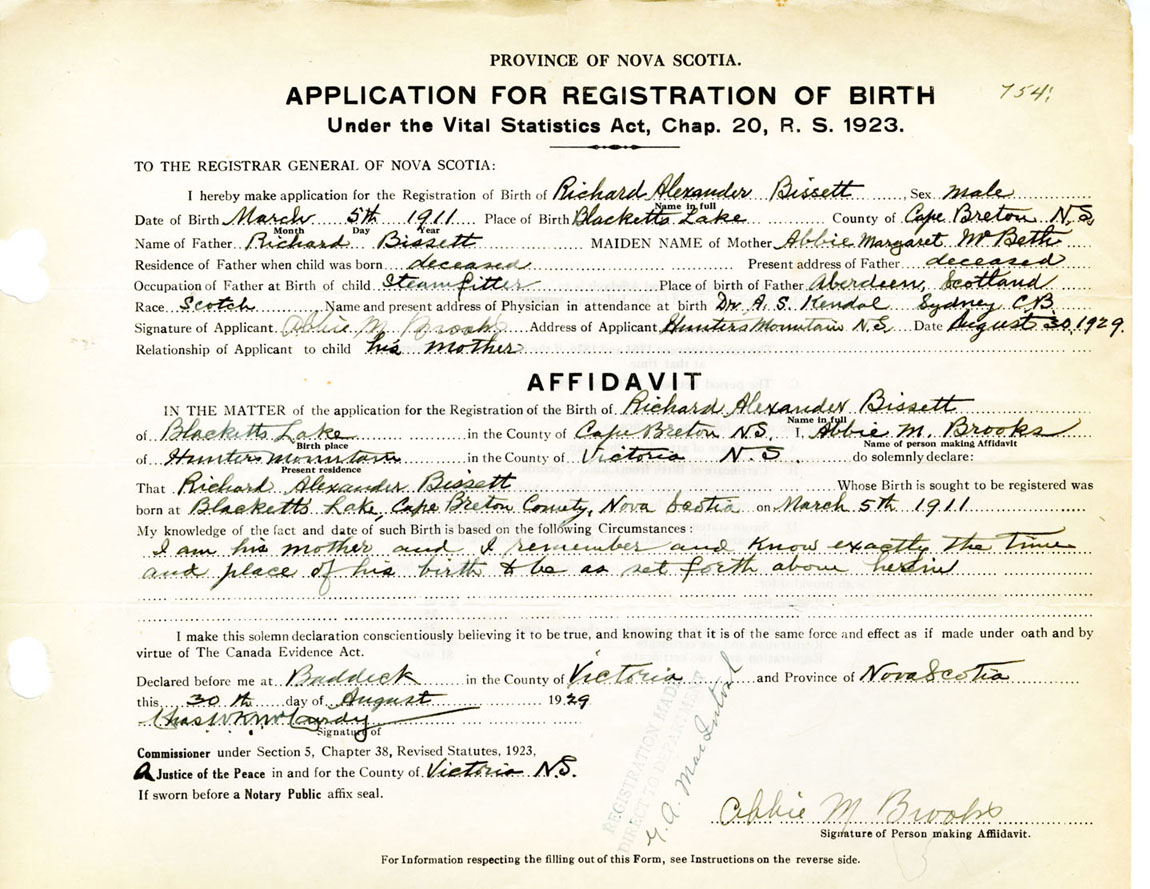 PROVINCE OF NOVA SCOTIA.
APPLICATION FOR REGISTRATION OF BIRTH 754!
Under the Vital Statistics Act, Chap. 20, R. S. 1923.
TO THE REGISTRAR GENERAL OF NOVA SCOTIA:
I hereby make application for the Registration of Birth of Richard Alexander Bissett Sex male
Name in full
Date of Birth March 5th 1911 Place of Birth Blacketts Lake County of Cape Breton N.S.
Month Day Year
Name of Father Richard Bissett MAIDEN NAME of Mother Abbie Margaret McBeth
Residence of Father when child was born deceased Present address of Father deceased
Occupation of Father at Birth of child Steamfitter Place of birth of Father Aberdeen, Scotland
Race Scotch Name and present address of Physician in attendance at birth Dr. A. S. Kendal Sydney C.B.
Signature of Applicant Abbie M Brooks Address of Applicant Hunters Mountain N.S. Date August 30, 1929.
Relationship of Applicant to child his mother
AFFIDAVIT
IN THE MATTER of the application for the Registration of the Birth of Richard Alexander Bissett
Name in full
of Blacketts Lake in the County of Cape Breton N.S. I, Abbie M. Brooks
Birth place Name of person making Affidavit
of Hunters Mountain in the County of Victoria N.S. do solemnly declare:
Present residence
That Richard Alexander Bissett Whose Birth is sought to be registered was
born at Blacketts Lake, Cape Breton County, Nova Scotia on March 5th 1911
My knowledge of the fact and date of such Birth is based on the following Circumstances:
I am his mother and I remember and know exactly the time
and place of his birth to be as set forth above herein
I make this solemn declaration conscientiously believing it to be true, and knowing that it is of the same force and effect as if made under oath and by
virtue of The Canada Evidence Act.
Declared before me at Baddeck in the County of Victoria and Province of Nova Scotia
this 30th day of August 1929
Signature of
Commissioner under Section 5, Chapter 38, Revised Statutes, 1923,
A Justice of the Peace in and for the County of Victoria N.S.
If sworn before a Notary Public affix seal.
REGISTRATION MADE
DIRECT TO DEPARTMENT
Abbie M Brooks
Signature of Person making Affidavit.
For Information respecting the filling out of this Form, see Instructions on the reverse side.